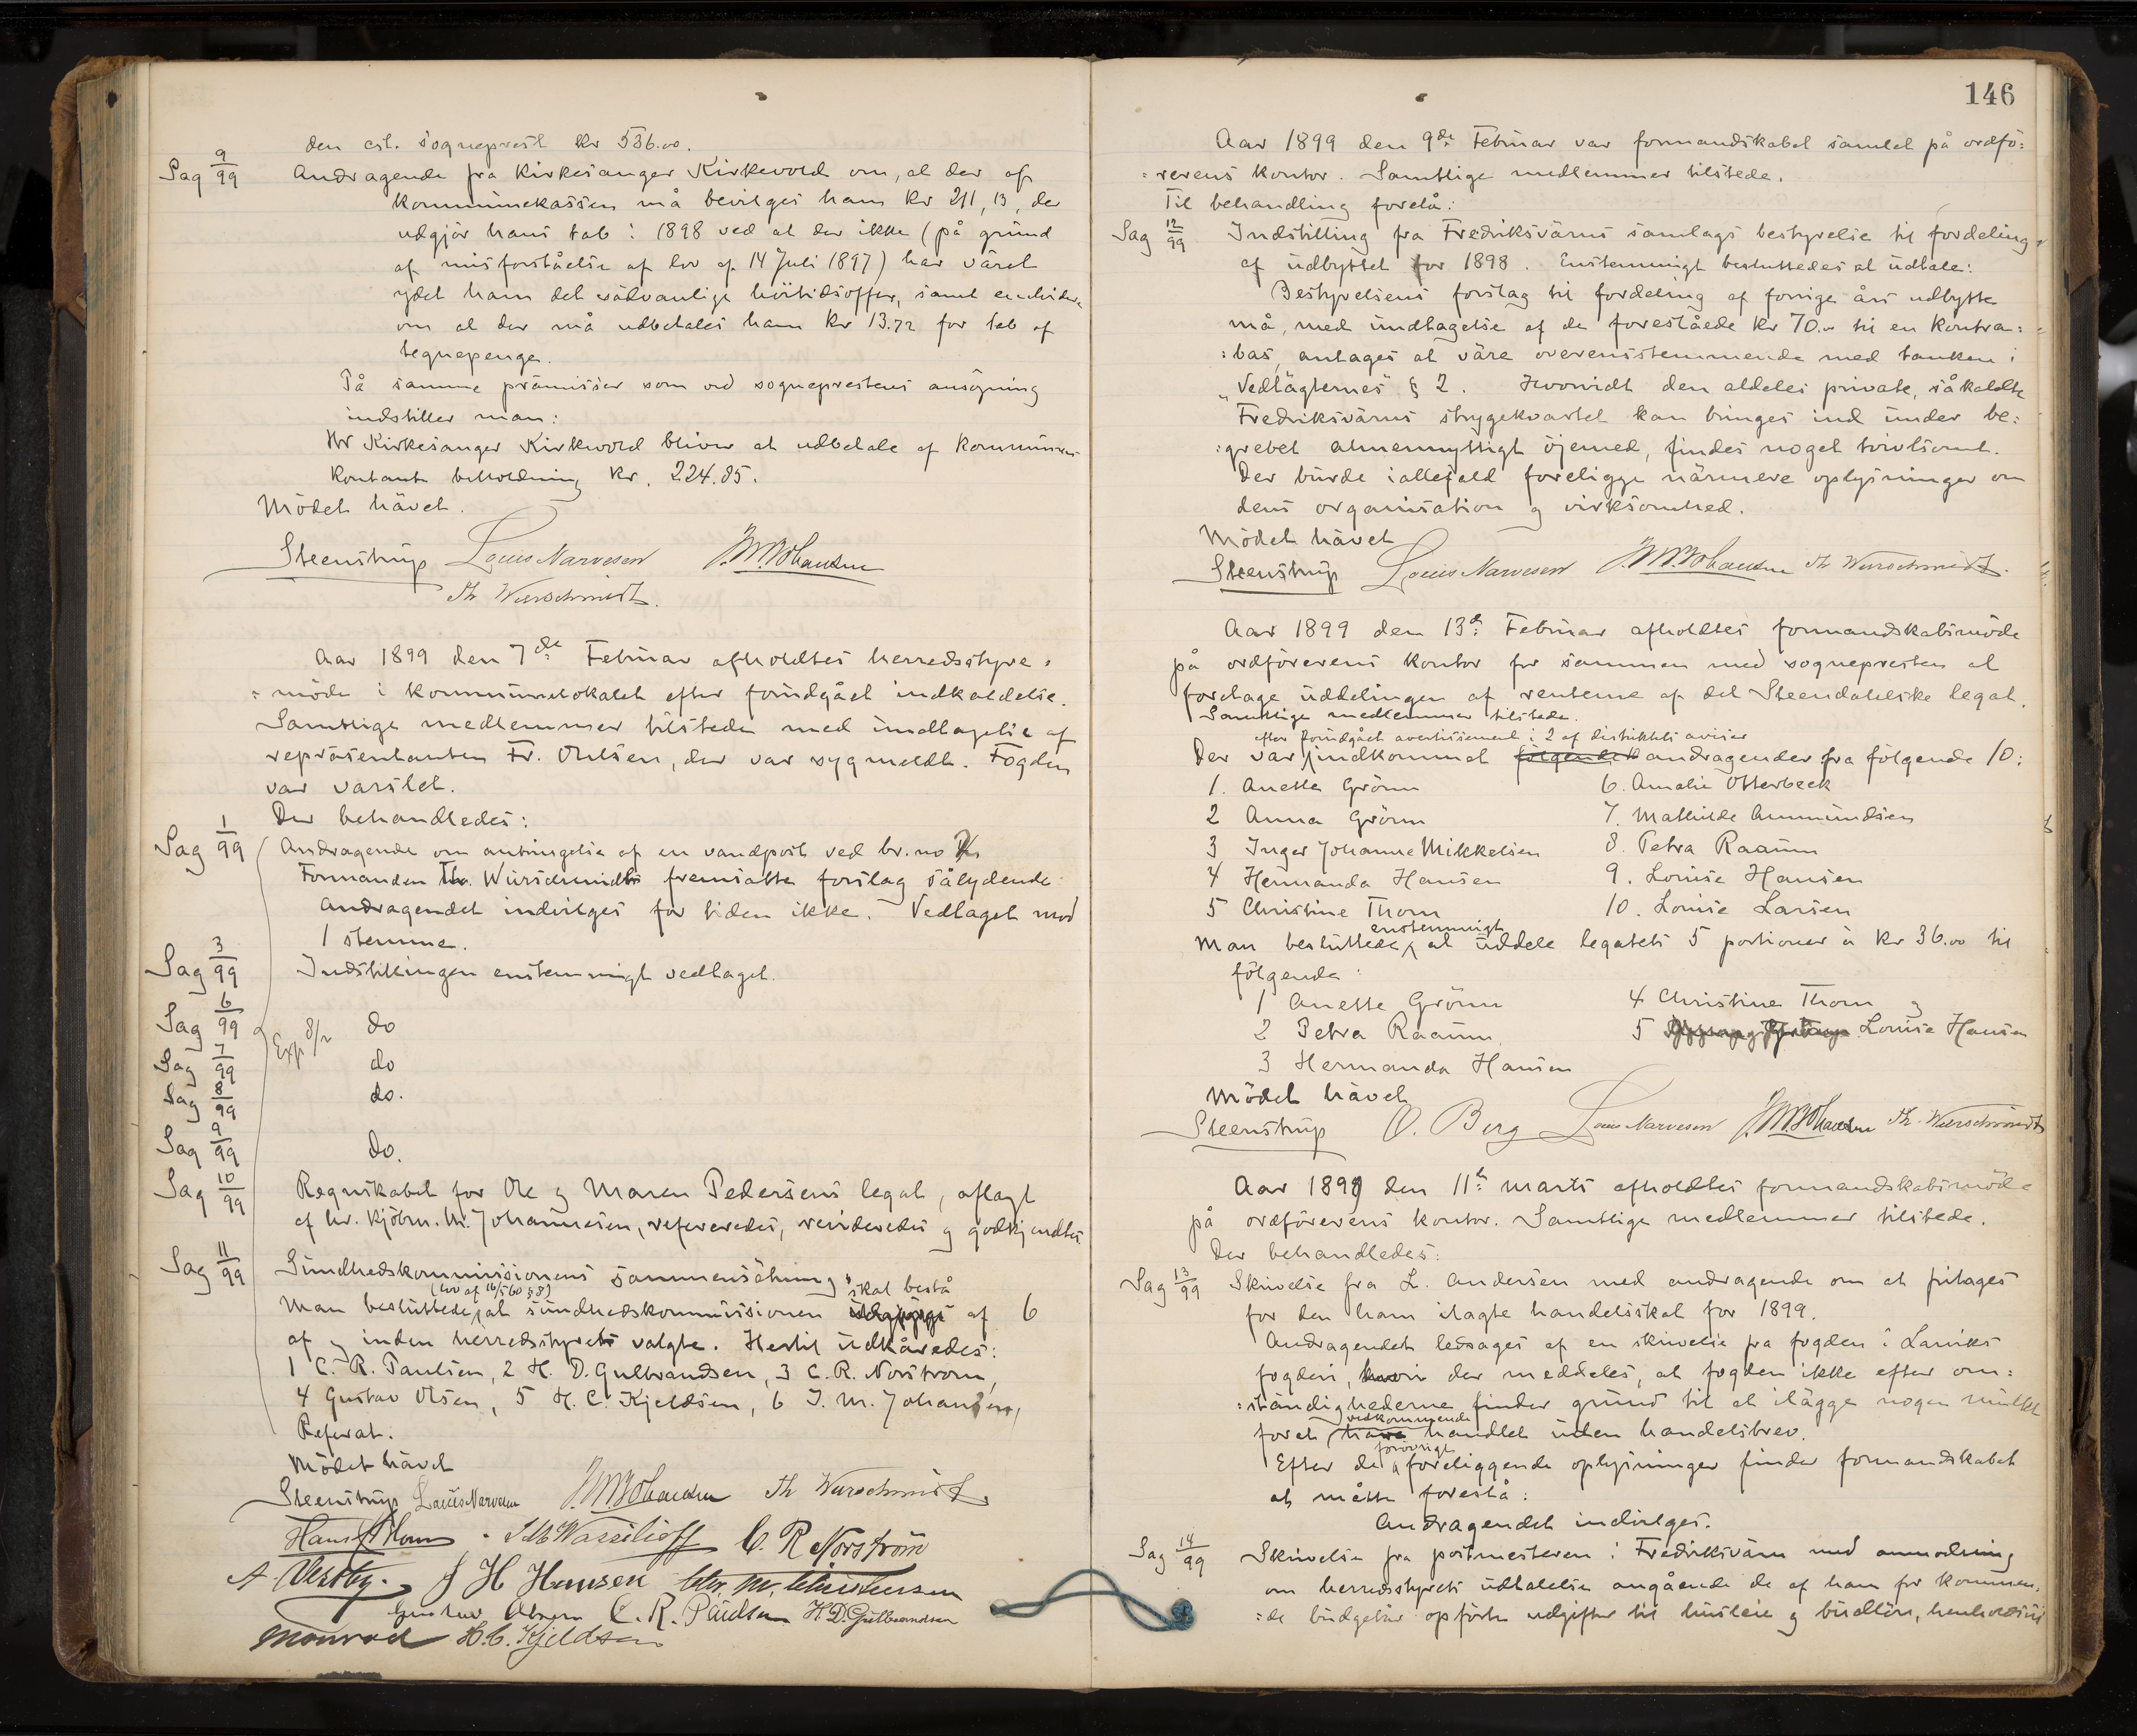 den cst. sogneprest kr 536.00.
Sag 9/99 Andragende fra Kirkesanger Kirkevold om, at der af
kommunekassen må bevilges ham kr 211,13, der
udgjør hans tab i 1898 ved at der ikke (på grund
af misforståelse af lov af 14 Juli 1897) har väret
ydet ham det vedvanlige höitidsoffer, samt endvidere
om at der må udbetales ham kr 13.72 for tab af
tegnepenge.
På samme prämisser som ved sogneprestens ansögning
indstiller man:
Hr Kirkesanger Kirkevold bliver at udbetale af kommunens
kontante beholdning kr. 224.85.
Mödet hävet.
Steenstrup Louis Narvesen J. M. Johansen
Th Wurschmidt.
Aar 1899 den 7de Februar afholdtes herredsstyre=
=möde i kommunelokalet efter forudgået indkaldelse.
Samtlige medlemmer tilstede med undtagelse af
repräsentanten Fr. Ohlsen, der var sygmeldt. Fogden
var varslet.
Der behandledes:
Sag 1/99 Andragende om anbringelse af en vandpost ved br. no
Formanden Th. Wurschmidt fremsatte forslag sålydende
Andragendet indvilges for tiden ikke. Vedtaget mod
1 stemme.
Sag 3/99 Indstillingen enstemmigt vedtaget.
Sag 6/99 do
Exp 8/2
Sag 7/99 do
Sag 8/99 do.
Sag 9/99 do.
Sag 10/99 Regnskabet for Ole og Maren Pedersens legat, aflagt
af hr. kjöbm. M. Johannesen, refereredes, revideredes og godkjendtes
Sag 11/99 Sundhedskommissionens sammensätning.
(lov af 16/5 60 § 8) skal bestå
Man besluttede, at sundhedskommissionen af 6
af og inden herredsstyret valgte. Hertil udkåredes:
1 C. R. Paulsen, 2 H. D. Gulbrandsen, 3 C. R. Norström,
4 Gustav Olsen, 5 H. C. Kjeldsen, 6 J. M. Johansen,
Referat.
Mödet hävet
Steenstrup Louis Narvesen J. M. Johansen Th Wurschmidt.
Hans Thorn Wassilioff C. R Norström
A. Vestby. J H Hansen Chr. M. Christensen
Gustav Olsen C. R. Paulsen H. D. Gulbrandsen
Monrad H. C. Kjeldsen
146
Aar 1899 den 9de Februar var formandskabet samlet på ordfö=
=rerens kontor. Samtlige medlemmer tilstede.
Til behandling forelå:
Sag 12/99 Indstilling fra Fredriksvärns samlags bestyrelse til fordeling
af udbyttet for 1898. Enstemmigt besluttedes at udtale:
Bestyrelsens forslag til fordeling af forrige års udbytte
må, med undtagelse af de foreslåede kr 70.00 til en kontra=
=bas, antages at väre overensstemmende med tanken i
"Vedtägternes" § 2. Hvorvidt den aldeles private, såkaldte
Fredriksvärns strygekvartet kan bringes ind under be=
=grebet almennyttigt öjemed, findes noget tvivlsomt.
Der burde iallefald foreligge närmere oplysninger om
dens organisation og virksomhed.
Mödet hävet
Steenstrup Louis Narvesen J. M. Johansen Th Wurschmidt.
Aar 1899 den 13de Februar afholdtes formandskabsmöde
på ordförerens kontor for sammen med sognepresten at
foretage uddelingen af renterne af det Steendahlske legat.
Samtlige medlemmer tilstede.
efter forudgået avertissement i 2 af distriktets aviser
Der var indkommet følgende andragender fra fölgende 10:
1. Anette Grönn 6. Amalie Otterbeck
2 Anna Grönn 7. Mathilde Ammundsen
3 Inger Johanne Mikkelsen 8. Petra Raaum
4 Hermanda Hansen 9. Lovise Hansen
5 Christine Thorn 10. Lovise Larsen
enstemmigt
Man besluttede at uddele legatets 5 portioner à kr 36.00 til
fölgende:
1 Anette Grönn 4 Christine Thorn og
2 Petra Raaum 5 Lovise Hansen
3 Hermanda Hansen
Mödet hävet
Steenstrup O. Berg Louis Narvesen J. M. Johansen Th. Wurschmidt
Aar 1899 den 11te marts afholdtes formandskabsmöde
på ordförerens kontor. Samtlige medlemmer tilstede.
Der behandledes:
Sag 13/99 Skrivelse fra L. Andersen med andragende om at fritages
for den ham ilagte handelsskat for 1899.
Andragendet ledsages af en skrivelse fra fogden i Larviks
fogderi, hvori der meddeles, at fogden ikke efter om=
=ständighederne finder grund til at ilägge nogen mulkt
vedkommende
for at have handlet uden handelsbrev.
forövrigt
Efter de foreliggende oplysninger finder formandskabet
at måtte foreslå:
Andragendet indvilges.
Sag 14/99 Skrivelse fra postmesteren i Fredriksvärn med anmodning
om herredsstyrets udtalelse angående de af ham for kommen=
=de budgetår opförte udgifter til husleie og budlön, henholdsvis